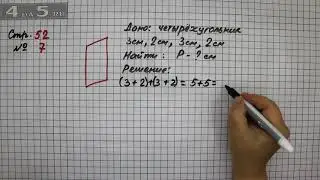 4 на 5.ru
Стр. 52
№ 7
Дано: четырёхугольник
3см, 2см, 3см, 2см
Найти: P - ? см
Решение:
(3+2)+(3+2)= 5+5=